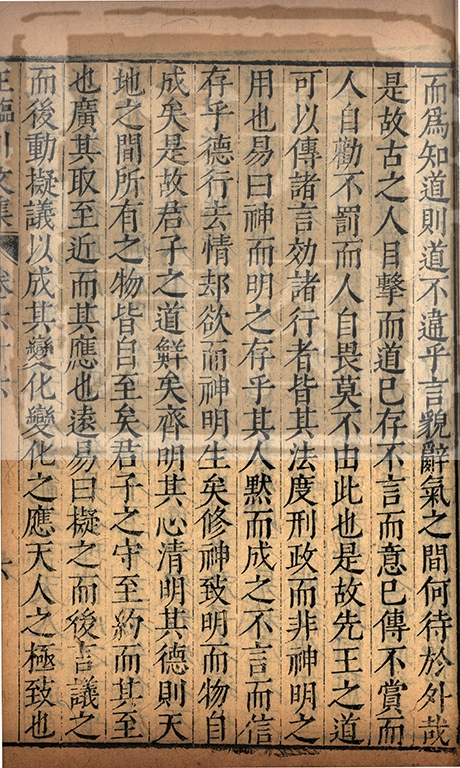 而爲知道則道不違乎言貌辭氣之間何待於外哉
是故古之人目擊而道已存不言而意已傳不賞而
人自勸不罰而人自畏莫不由此也是故先王之道
可以傳諸言効諸行者皆其法度刑政而非神明之
用也易曰神而明之存乎其人默而成之不言而信
存乎德行去情却欲而神明生矣修神致明而物自
成矣是故君子之道鮮矣齊明其心清明其德則天
地之間所有之物皆自至矣君子之守至約而其至
也廣其取至近而其應也遠易曰擬之而後言議之
而後動擬議以成其變化變化之應天人之極致也
王臨川文集 卷六十六 六